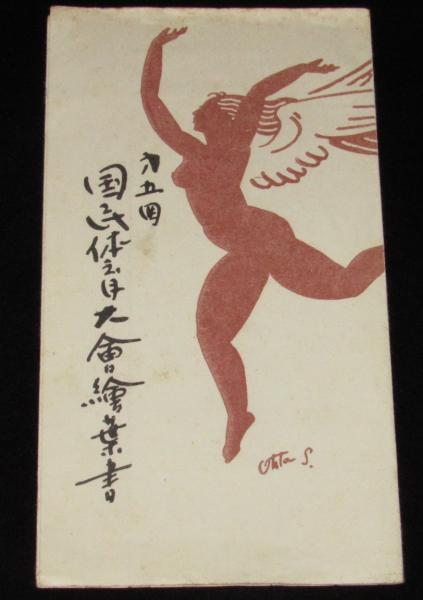 才五回
国民体育大會繪葉書
Ohta S.